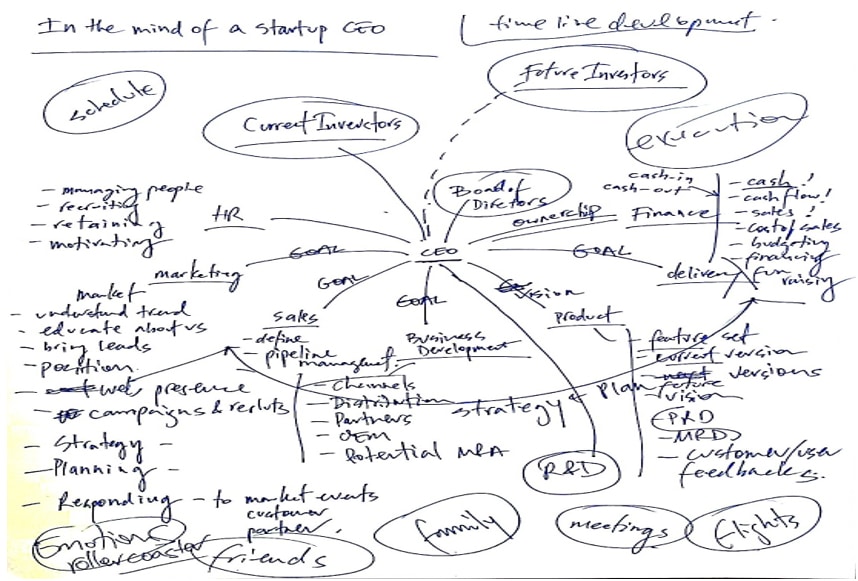 In the mind of a startup CEO
time line development.
schedule
Current Invectors
Future Investors
execution
Board of
Directors
cash-in
cash-out
- managing people
- recruiting
- retaining
- motivating
HR
ownership
Finance
- cash!
- cash flow!
- sales!
- cost of sales
- budgeting
- financing
fun
raising
CEO
GOAL
GOAL
GOAL
GOAL
marketing
delivery
vision
market
- understand trend
- educate about us
- bring leads
- position
- web presence
- campaigns & results
- Strategy -
- Planning -
- Responding - to market events
customer
partner
sales
- define
- pipeline
management
Business
Development
- Channels
- Distribution
- Partners
- OEM
- Potential M&A
Product
- feature set
- current version
- next versions
future
- vision
- PRD
- MRD
- customer/user
feedbacks
strategy & Plan
R&D
Emotions
rollercoaster
friends
family
meetings
flights